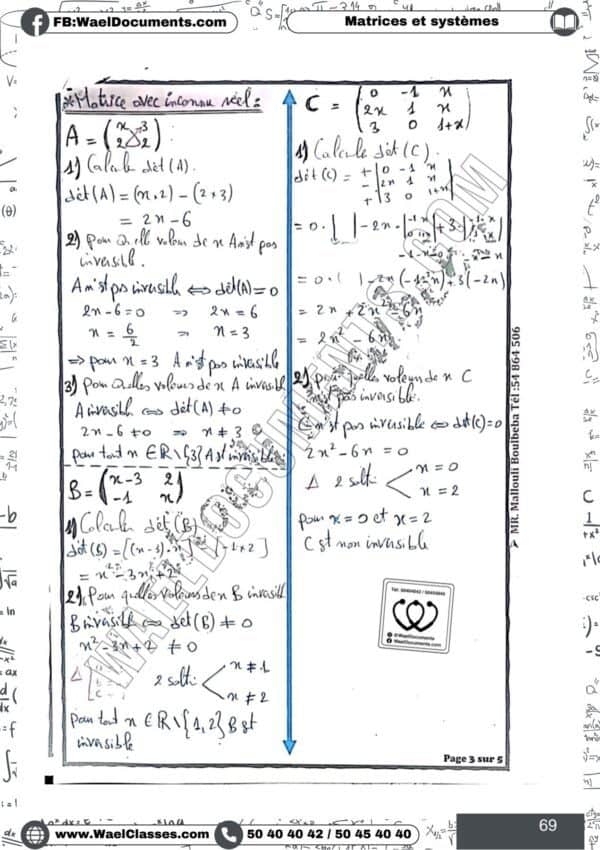 FB:WaelDocuments.com
Matrices et systèmes
* Matrice avec inconnu réel :
A = ( x 3
2 2 ) :
1) Calcule dèt (A).
dèt (A) = (x × 2) − (2 × 3)
= 2x − 6
2) pour quelle valeur de x A n'est pas
inversible.
A n'est pas inversible ⇔ dèt(A) = 0
2x − 6 = 0 ⇒ 2x = 6
x = 6/2 ⇒ x = 3
⇒ pour x = 3 A n'est pas inversible
3) Pour quelles valeurs de x A inversible
A inversible ⇔ dèt(A) ≠ 0
2x − 6 ≠ 0 ⇒ x ≠ 3
pour tout x ∈ IR \ {3} A est inversible.
B = ( x−3 2
−1 x )
1) Calculer dèt (B)
dèt (B) = [(x−3) × x] − [−1 × 2]
= x² − 3x + 2
2) Pour quelles valeurs de x B inversible
B inversible ⇔ dèt (B) ≠ 0
x² − 3x + 2 ≠ 0
Δ
2 solt :
x ≠ 1
x ≠ 2
pour tout x ∈ IR \ {1, 2} B est
inversible
C = ( 0 −1 x
2x 1 x
3 0 1+x )
1) Calcule dèt (C).
dèt (C) = + | 0 −1 x
− | 2x 1 x
+ | 3 0 1+x |
= 0 · | | − 2x · | −1 x
0 1+x | + 3 · | −1 x
1 x |
= 0 · ( ) − 2x (−1 − x) + 3 (−2x)
= 2x + 2x² − 6x
= 2x² − 6x
2) pour quelles valeurs de x C
n'est pas inversible.
C n'est pas inversible ⇔ dèt(C) = 0
2x² − 6x = 0
Δ 2 solt
x = 0
x = 2
pour x = 0 et x = 2
C est non inversible
MR. Mallouli Boulbeba Tél :54 864 506
WAELDOCUMENTS.COM
Tel: 50404042 / 50454040
@WaelDocuments
WaelDocuments.com
Page 3 sur 5
www.WaelClasses.com
50 40 40 42 / 50 45 40 40
69